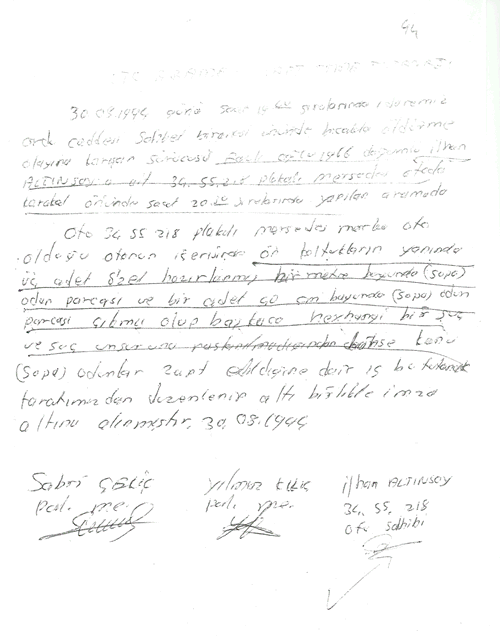 94
30.08.1994 günü saat 19 sıralarında
caddesi Sahiler karakol önünde bıçakla öldürme
olayına karışan sürücüsü oğlu 1966 doğumlu ilhan
ALTINSOY'a ait 34.55.218 plakalı mersedes otoda
karakol önünde saat 20 sıralarında yapılan aramada
Oto 34 55 218 plakalı mersedes marka oto
olduğu otonun içerisinde ön koltukların yanında
üç adet özel hazırlanmış bir metre boyunda (sopa)
odun parçası ve bir adet 40 cm boyunda (sopa) odun
parçası çıkmış olup başkaca herhangi bir suç
ve suç unsuruna rastlanılmadığından bahse konu
(sopa) odunlar zapt edildiğine dair iş bu tutanak
tarafımızdan düzenlenip altı birlikte imza
altına alınmıştır. 30.08.1994
Sabri ÇELİÇ yılmaz KILIÇ ilhan ALTINSOY
pol. me. pol. me. 34. 55. 218
oto sahibi